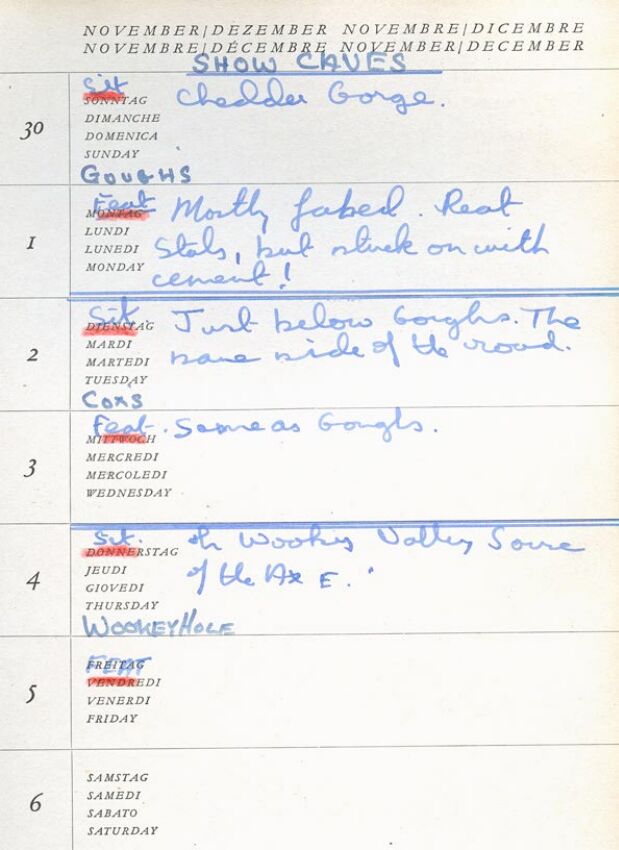 NOVEMBER|DEZEMBER NOVEMBRE|DICEMBRE
NOVEMBRE|DÉCEMBRE NOVEMBER|DECEMBER
SHOW CAVES
Sit
Chedder Gorge.
30
SONNTAG
DIMANCHE
DOMENICA
SUNDAY
GOUGHS
Feat
Mostly faked. Real
Stals, but stuck on with
cement!
1
MONTAG
LUNDI
LUNEDI
MONDAY
Sit
Just below Goughs. The
same side of the road.
2
DIENSTAG
MARDI
MARTEDI
TUESDAY
COXS
Feat. Same as Goughs.
3
MITTWOCH
MERCREDI
MERCOLEDI
WEDNESDAY
Sit.
Wookey Valley
of the Axe.
4
DONNERSTAG
JEUDI
GIOVEDI
THURSDAY
WOOKEY HOLE
FEAT
5
FREITAG
VENDREDI
VENERDI
FRIDAY
6
SAMSTAG
SAMEDI
SABATO
SATURDAY